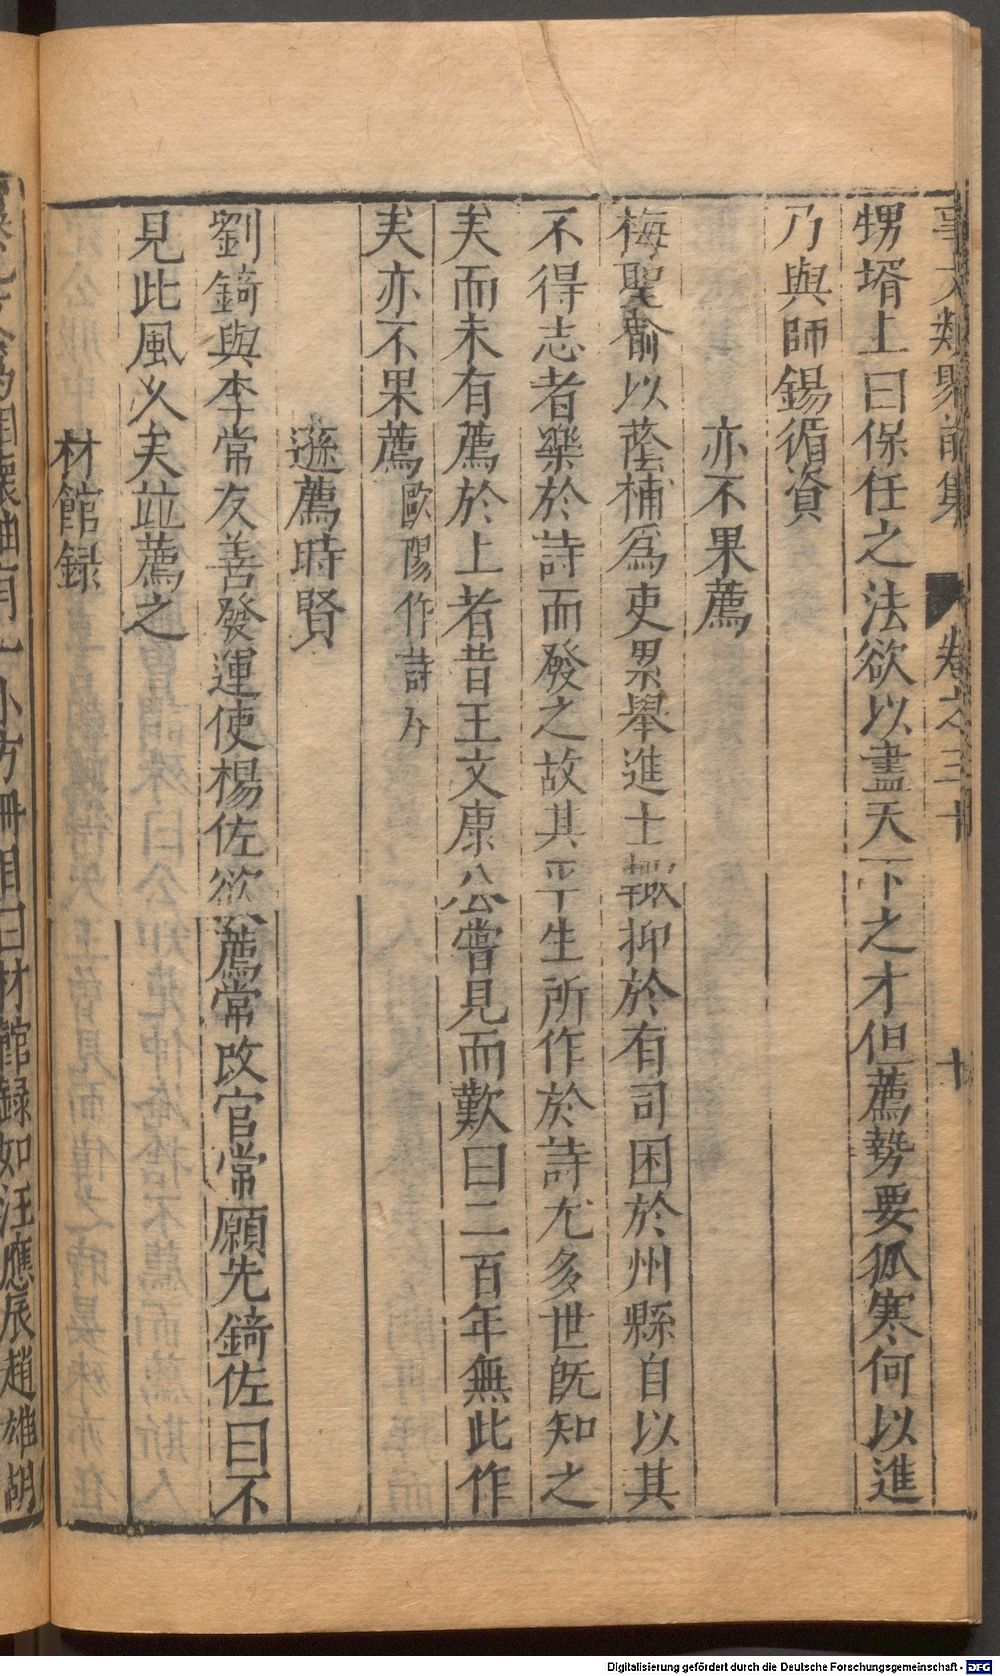 事文類聚前集 卷之三十 十
甥壻上曰保任之法欲以盡天下之才但薦勢要孤寒何以進
乃與師錫循資
亦不果薦
梅聖俞以蔭補爲吏累舉進士輒抑於有司困於州縣自以其
不得志者樂於詩而發之故其平生所作於詩尤多世既知之
矣而未有薦於上者昔王文康公嘗見而歎曰二百年無此作
矣亦不果薦歐陽作詩序
遜薦時賢
劉錡與李常友善發運使楊佐欲薦常改官常願先錡佐曰不
見此風久矣並薦之
材館録
小方冊目曰材館録如汪應辰趙雄胡
Digitalisierung gefördert durch die Deutsche Forschungsgemeinschaft - DFG